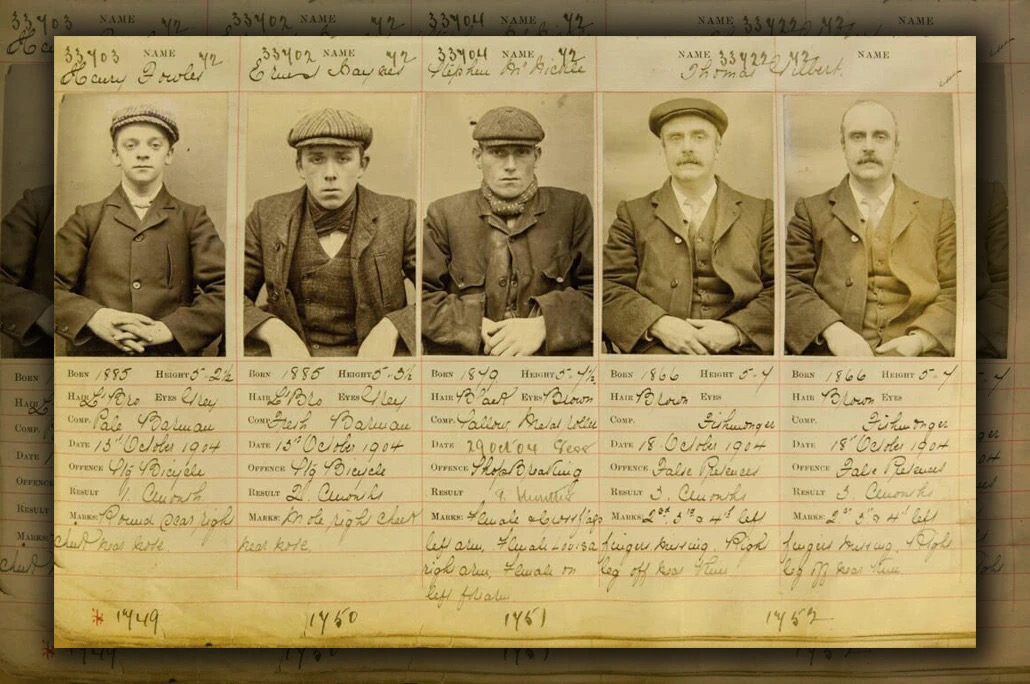 33703 NAME 72
Henry Fowles
33702 NAME 72
Ernest Haynes
33704 NAME 72
Stephen
NAME 33722 72
Thomas
NAME
BORN 1885 HEIGHT 5-2½
HAIR L't Bro EYES Grey
COMP. Pale Barman
DATE 13th October 1904
OFFENCE Stg Bicycle
RESULT 1. Cmonth
MARKS: Round scar right
cheek near nose
1749
BORN 1885 HEIGHT 5-3½
HAIR L't Bro EYES Grey
COMP. Fresh Barman
DATE 13th October 1904
OFFENCE Stg Bicycle
RESULT 2. Cmonths
MARKS: Mole right cheek
near nose
1750
BORN 1879 HEIGHT 5-4½
HAIR Black EYES Brown
COMP. Sallow, Metal roller
DATE 29 Oct 04
OFFENCE Shop Breaking
RESULT 9 Months
MARKS: Female & Cross
left arm, Female Louisa
right arm, Female on
left forearm
1751
BORN 1866 HEIGHT 5-4
HAIR Brown EYES
COMP. Fishmonger
DATE 18 October 1904
OFFENCE False Pretences
RESULT 3. Cmonths
MARKS: 2nd, 3rd & 4th left
fingers missing. Right
leg off near
BORN 1866 HEIGHT 5-4
HAIR Brown EYES
COMP. Fishmonger
DATE 18th October 1904
OFFENCE False Pretences
RESULT 3. Cmonths
MARKS: 2nd 3rd & 4th left
fingers missing. Right
leg off near
1752